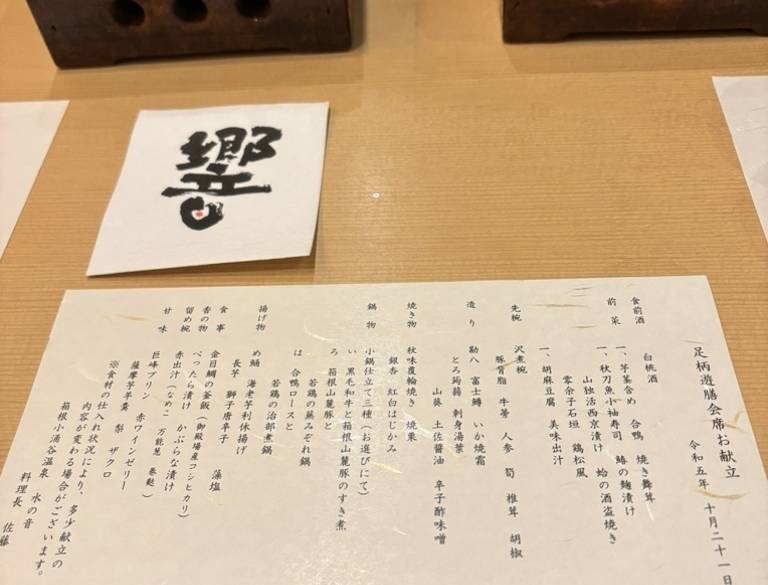 響
足柄遊膳会席お献立
令和五年 十月二十一日
食前酒 白桃酒
前菜 一、芋茎含め 合鴨 焼き舞茸
一、秋刀魚小袖寿司 鰆の麹漬け
山独活西京漬け 蛤の酒盗焼き
零余子石垣 鶏松風
一、胡麻豆腐 美味出汁
先椀 沢煮椀
豚背脂 牛蒡 人参 筍 椎茸 胡椒
造り 勘八 富士鱒 いか焼霜
とろ蒟蒻 刺身湯葉
山葵 土佐醤油 辛子酢味噌
焼き物 秋味覆輪焼き 焼栗
銀杏 紅白はじかみ
鍋物 小鍋仕立て三種(お選びにて)
い 黒毛和牛と箱根山麓豚のすき煮
ろ 箱根山麓豚と
若鶏の蕪みぞれ鍋
は 合鴨ロースと
若鶏の治部煮鍋
揚げ物 め鯒 海老芋利休揚げ
長芋 獅子唐辛子 藻塩
食事 金目鯛の釜飯(御殿場産コシヒカリ)
香の物 べったら漬け かぶらな漬け
留め椀 赤出汁(なめこ 万能葱 巻麩)
甘味 巨峰プリン 赤ワインゼリー
薩摩芋羊羹 梨 ザクロ
※食材の仕入れ状況により、多少献立の
内容が変わる場合がございます。
箱根小涌谷温泉 水の音
料理長 佐藤